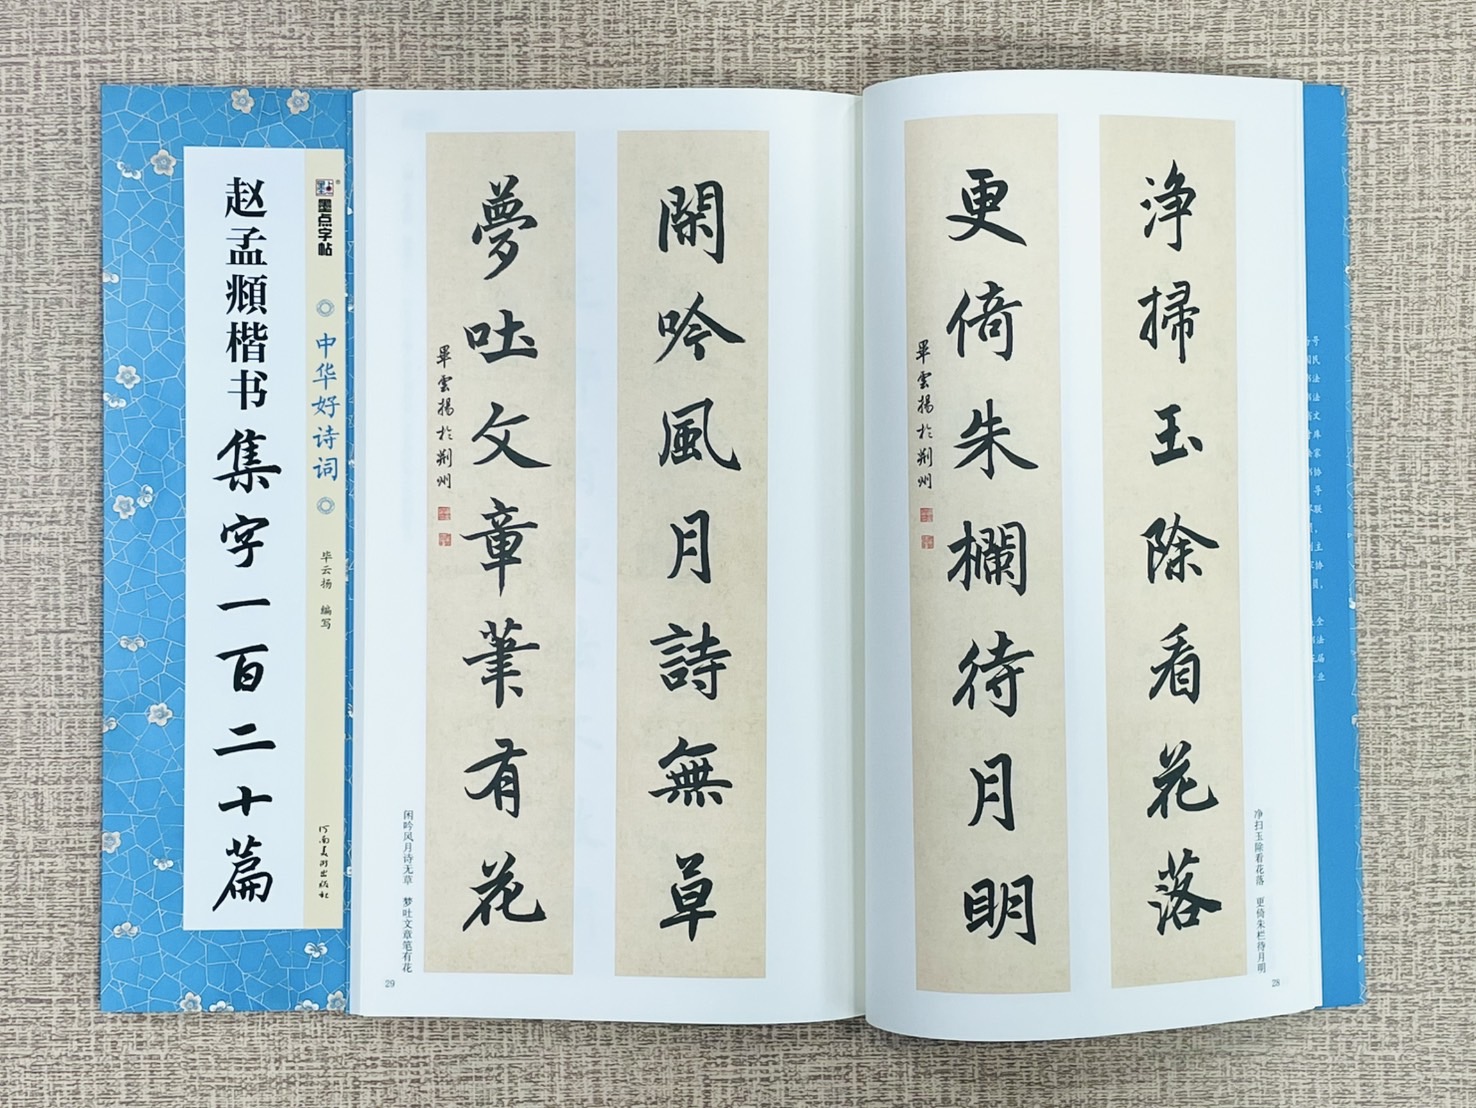 赵孟頫楷书集字一百二十篇
墨点字帖
中华好诗词
毕云扬 编写
河南美术出版社
净掃玉除看花落
更倚朱欄待月明
畢雲揚於荆州
净扫玉除看花落 更倚朱栏待月明
28
閑吟風月詩無草
夢吐文章筆有花
畢雲揚於荆州
闲吟风月诗无草 梦吐文章笔有花
29